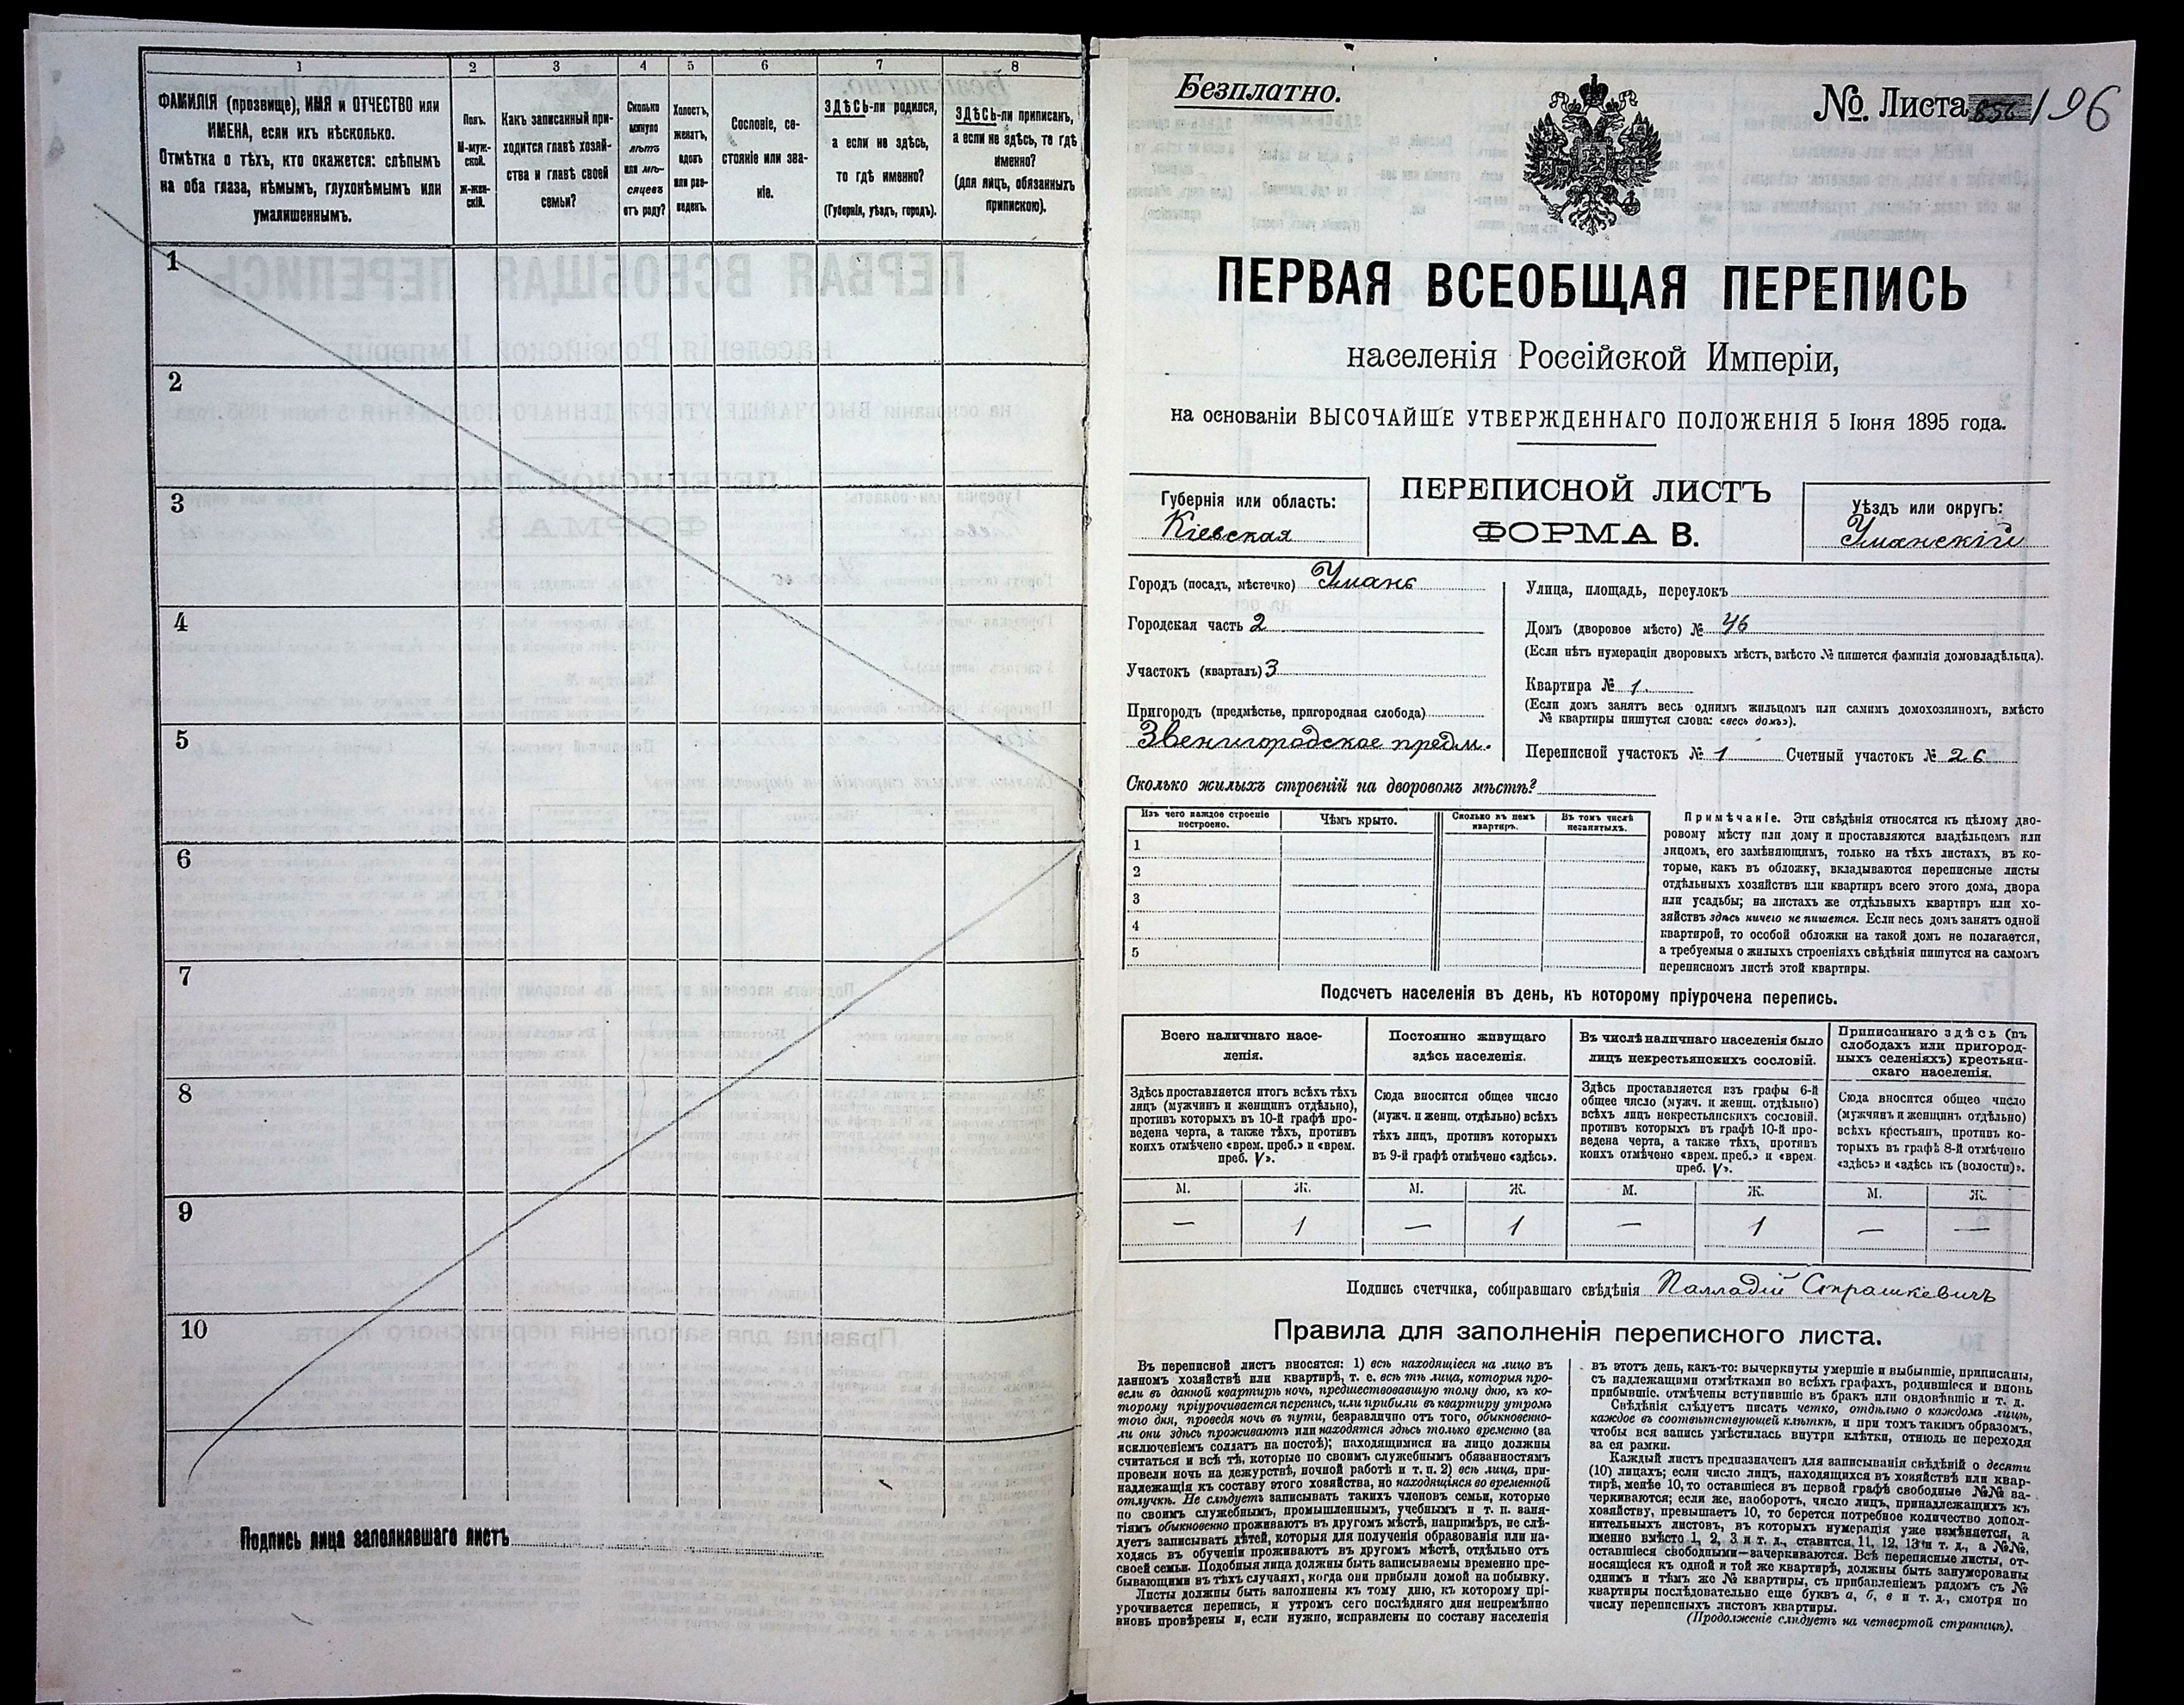 1 2 3 4 5 6 7 8
ФАМИЛІЯ (прозвище), ИМЯ и ОТЧЕСТВО или
ИМЕНА, если ихъ нѣсколько.
Отмѣтка о тѣхъ, кто окажется: слѣпымъ
на оба глаза, нѣмымъ, глухонѣмымъ или
умалишеннымъ.
Полъ.
М-муж-
ской.
Ж-жен-
скій.
Какъ записанный при-
ходится главѣ хозяй-
ства и главѣ своей
семьи?
Сколько
минуло
лѣтъ
или мѣ-
сяцевъ
отъ роду?
Холостъ,
женатъ,
вдовъ
или раз-
веденъ.
Сословіе, со-
стояніе или зва-
ніе.
ЗДѢСЬ-ли родился,
а если не здѣсь,
то гдѣ именно?
(Губернія, уѣздъ, городъ).
ЗДѢСЬ-ли приписанъ,
а если не здѣсь, то гдѣ
именно?
(для лицъ, обязанныхъ
припискою).
1
2
3
4
5
6
7
8
9
10
Подпись лица заполнявшаго листъ
Безплатно.
№. Листа 196
ПЕРВАЯ ВСЕОБЩАЯ ПЕРЕПИСЬ
населенія Россійской Имперіи,
на основаніи ВЫСОЧАЙШЕ УТВЕРЖДЕННАГО ПОЛОЖЕНІЯ 5 Іюня 1895 года.
Губернія или область:
Кіевская
ПЕРЕПИСНОЙ ЛИСТЪ
ФОРМА В.
Уѣздъ или округъ:
Уманскій
Городъ (посадъ, мѣстечко) Умань
Городская часть 2
Участокъ (кварталъ) 3
Пригородъ (предмѣстье, пригородная слобода)
Звенигородское предм.
Улица, площадь, переулокъ
Домъ (дворовое мѣсто) № 46
(Если нѣтъ нумераціи дворовыхъ мѣстъ, вмѣсто № пишется фамилія домовладѣльца).
Квартира № 1.
(Если домъ занятъ весь однимъ жильцомъ или самимъ домохозяиномъ, вмѣсто
№ квартиры пишутся слова: «весь домъ»).
Переписной участокъ № 1 Счетный участокъ № 26
Сколько жилыхъ строеній на дворовомъ мѣстѣ?
Изъ чего каждое строеніе
построено.
Чѣмъ крыто.
Сколько въ немъ
квартиръ.
Въ томъ числѣ
незанятыхъ.
1
2
3
4
5
Примѣчаніе. Эти свѣдѣнія относятся къ цѣлому дво-
ровому мѣсту или дому и проставляются владѣльцемъ или
лицомъ, его замѣняющимъ, только на тѣхъ листахъ, въ ко-
торые, какъ въ обложку, вкладываются переписные листы
отдѣльныхъ хозяйствъ или квартиръ всего этого дома, двора
или усадьбы; на листахъ же отдѣльныхъ квартиръ или хо-
зяйствъ здѣсь ничего не пишется. Если весь домъ занятъ одной
квартирой, то особой обложки на такой домъ не полагается,
а требуемыя о жилыхъ строеніяхъ свѣдѣнія пишутся на самомъ
переписномъ листѣ этой квартиры.
Подсчетъ населенія въ день, къ которому пріурочена перепись.
Всего наличнаго насе-
ленія.
Постоянно живущаго
здѣсь населенія.
Въ числѣ наличнаго населенія было
лицъ некрестьянскихъ сословій.
Приписаннаго здѣсь (въ
слободахъ или пригород-
ныхъ селеніяхъ) крестьян-
скаго населенія.
Здѣсь проставляется итогъ всѣхъ тѣхъ
лицъ (мужчинъ и женщинъ отдѣльно),
противъ которыхъ въ 10-й графѣ про-
ведена черта, а также тѣхъ, противъ
коихъ отмѣчено «врем. преб.» и «врем.
преб. V».
Сюда вносится общее число
(мужч. и женщ. отдѣльно) всѣхъ
тѣхъ лицъ, противъ которыхъ
въ 9-й графѣ отмѣчено «здѣсь».
Здѣсь проставляется изъ графы 6-й
общее число (мужч. и женщ. отдѣльно)
всѣхъ лицъ некрестьянскихъ сословій.
противъ которыхъ въ графѣ 10-й про-
ведена черта, а также тѣхъ, противъ
коихъ отмѣчено «врем. преб.» и «врем.
преб. V».
Сюда вносится общее число
(мужчинъ и женщинъ отдѣльно)
всѣхъ крестьянъ, противъ ко-
торыхъ въ графѣ 8-й отмѣчено
«здѣсь» и «здѣсь къ (волости)».
М. Ж. М. Ж. М. Ж. М. Ж.
— 1 — 1 — 1 — —
Подпись счетчика, собиравшаго свѣдѣнія Палладій Страшкевичъ
Правила для заполненія переписного листа.
Въ переписной листъ вносятся: 1) всѣ находящіеся на лицо въ
данномъ хозяйствѣ или квартирѣ, т. е. всѣ тѣ лица, которыя про-
вели въ данной квартирѣ ночь, предшествовавшую тому дню, къ ко-
торому пріурочивается перепись, или прибыли въ квартиру утромъ
того дня, проведя ночь въ пути, безразлично отъ того, обыкновенно-
ли они здѣсь проживаютъ или находятся здѣсь только временно (за
исключеніемъ солдатъ на постоѣ); находящимися на лицо должны
считаться и всѣ тѣ, которые по своимъ служебнымъ обязанностямъ
провели ночь на дежурствѣ, ночной работѣ и т. п. 2) всѣ лица, при-
надлежащія къ составу этого хозяйства, но находящіяся во временной
отлучкѣ. Не слѣдуетъ записывать такихъ членовъ семьи, которые
по своимъ служебнымъ, промышленнымъ, учебнымъ и т. п. заня-
тіямъ обыкновенно проживаютъ въ другомъ мѣстѣ, напримѣръ, не слѣ-
дуетъ записывать дѣтей, которыя для полученія образованія или на-
ходясь въ обученіи проживаютъ въ другомъ мѣстѣ, отдѣльно отъ
своей семьи. Подобныя лица должны быть записываемы временно пре-
бывающими въ тѣхъ случаяхъ, когда они прибыли домой на побывку.
Листы должны быть заполнены къ тому дню, къ которому прі-
урочивается перепись, и утромъ сего послѣдняго дня непремѣнно
вновь провѣрены и, если нужно, исправлены по составу населенія
въ этотъ день, какъ-то: вычеркнуты умершіе и выбывшіе, приписаны,
съ надлежащими отмѣтками во всѣхъ графахъ, родившіеся и вновь
прибывшіе. отмѣчены вступившіе въ бракъ или овдовѣвшіе и т. д.
Свѣдѣнія слѣдуетъ писать четко, отдѣльно о каждомъ лицѣ,
каждое въ соотвѣтствующей клѣткѣ, и при томъ такимъ образомъ,
чтобы вся запись умѣстилась внутри клѣтки, отнюдь не переходя
за ея рамки.
Каждый листъ предназначенъ для записыванія свѣдѣній о десяти
(10) лицахъ; если число лицъ, находящихся въ хозяйствѣ или квар-
тирѣ, менѣе 10, то оставшіеся въ первой графѣ свободные №№ за-
черкиваются; если же, наоборотъ, число лицъ, принадлежащихъ къ
хозяйству, превышаетъ 10, то берется потребное количество допол-
нительныхъ листовъ, въ которыхъ нумерація уже измѣняется, а
именно вмѣсто 1, 2, 3 и т. д., ставится 11, 12, 13 и т. д., а №№,
оставшіеся свободными—зачеркиваются. Всѣ переписные листы, от-
носящіеся къ одной и той же квартирѣ, должны быть занумерованы
однимъ и тѣмъ же № квартиры, съ прибавленіемъ рядомъ съ №
квартиры послѣдовательно еще буквъ а, б, в и т. д., смотря по
числу переписныхъ листовъ квартиры.
(Продолженіе слѣдуетъ на четвертой страницѣ).